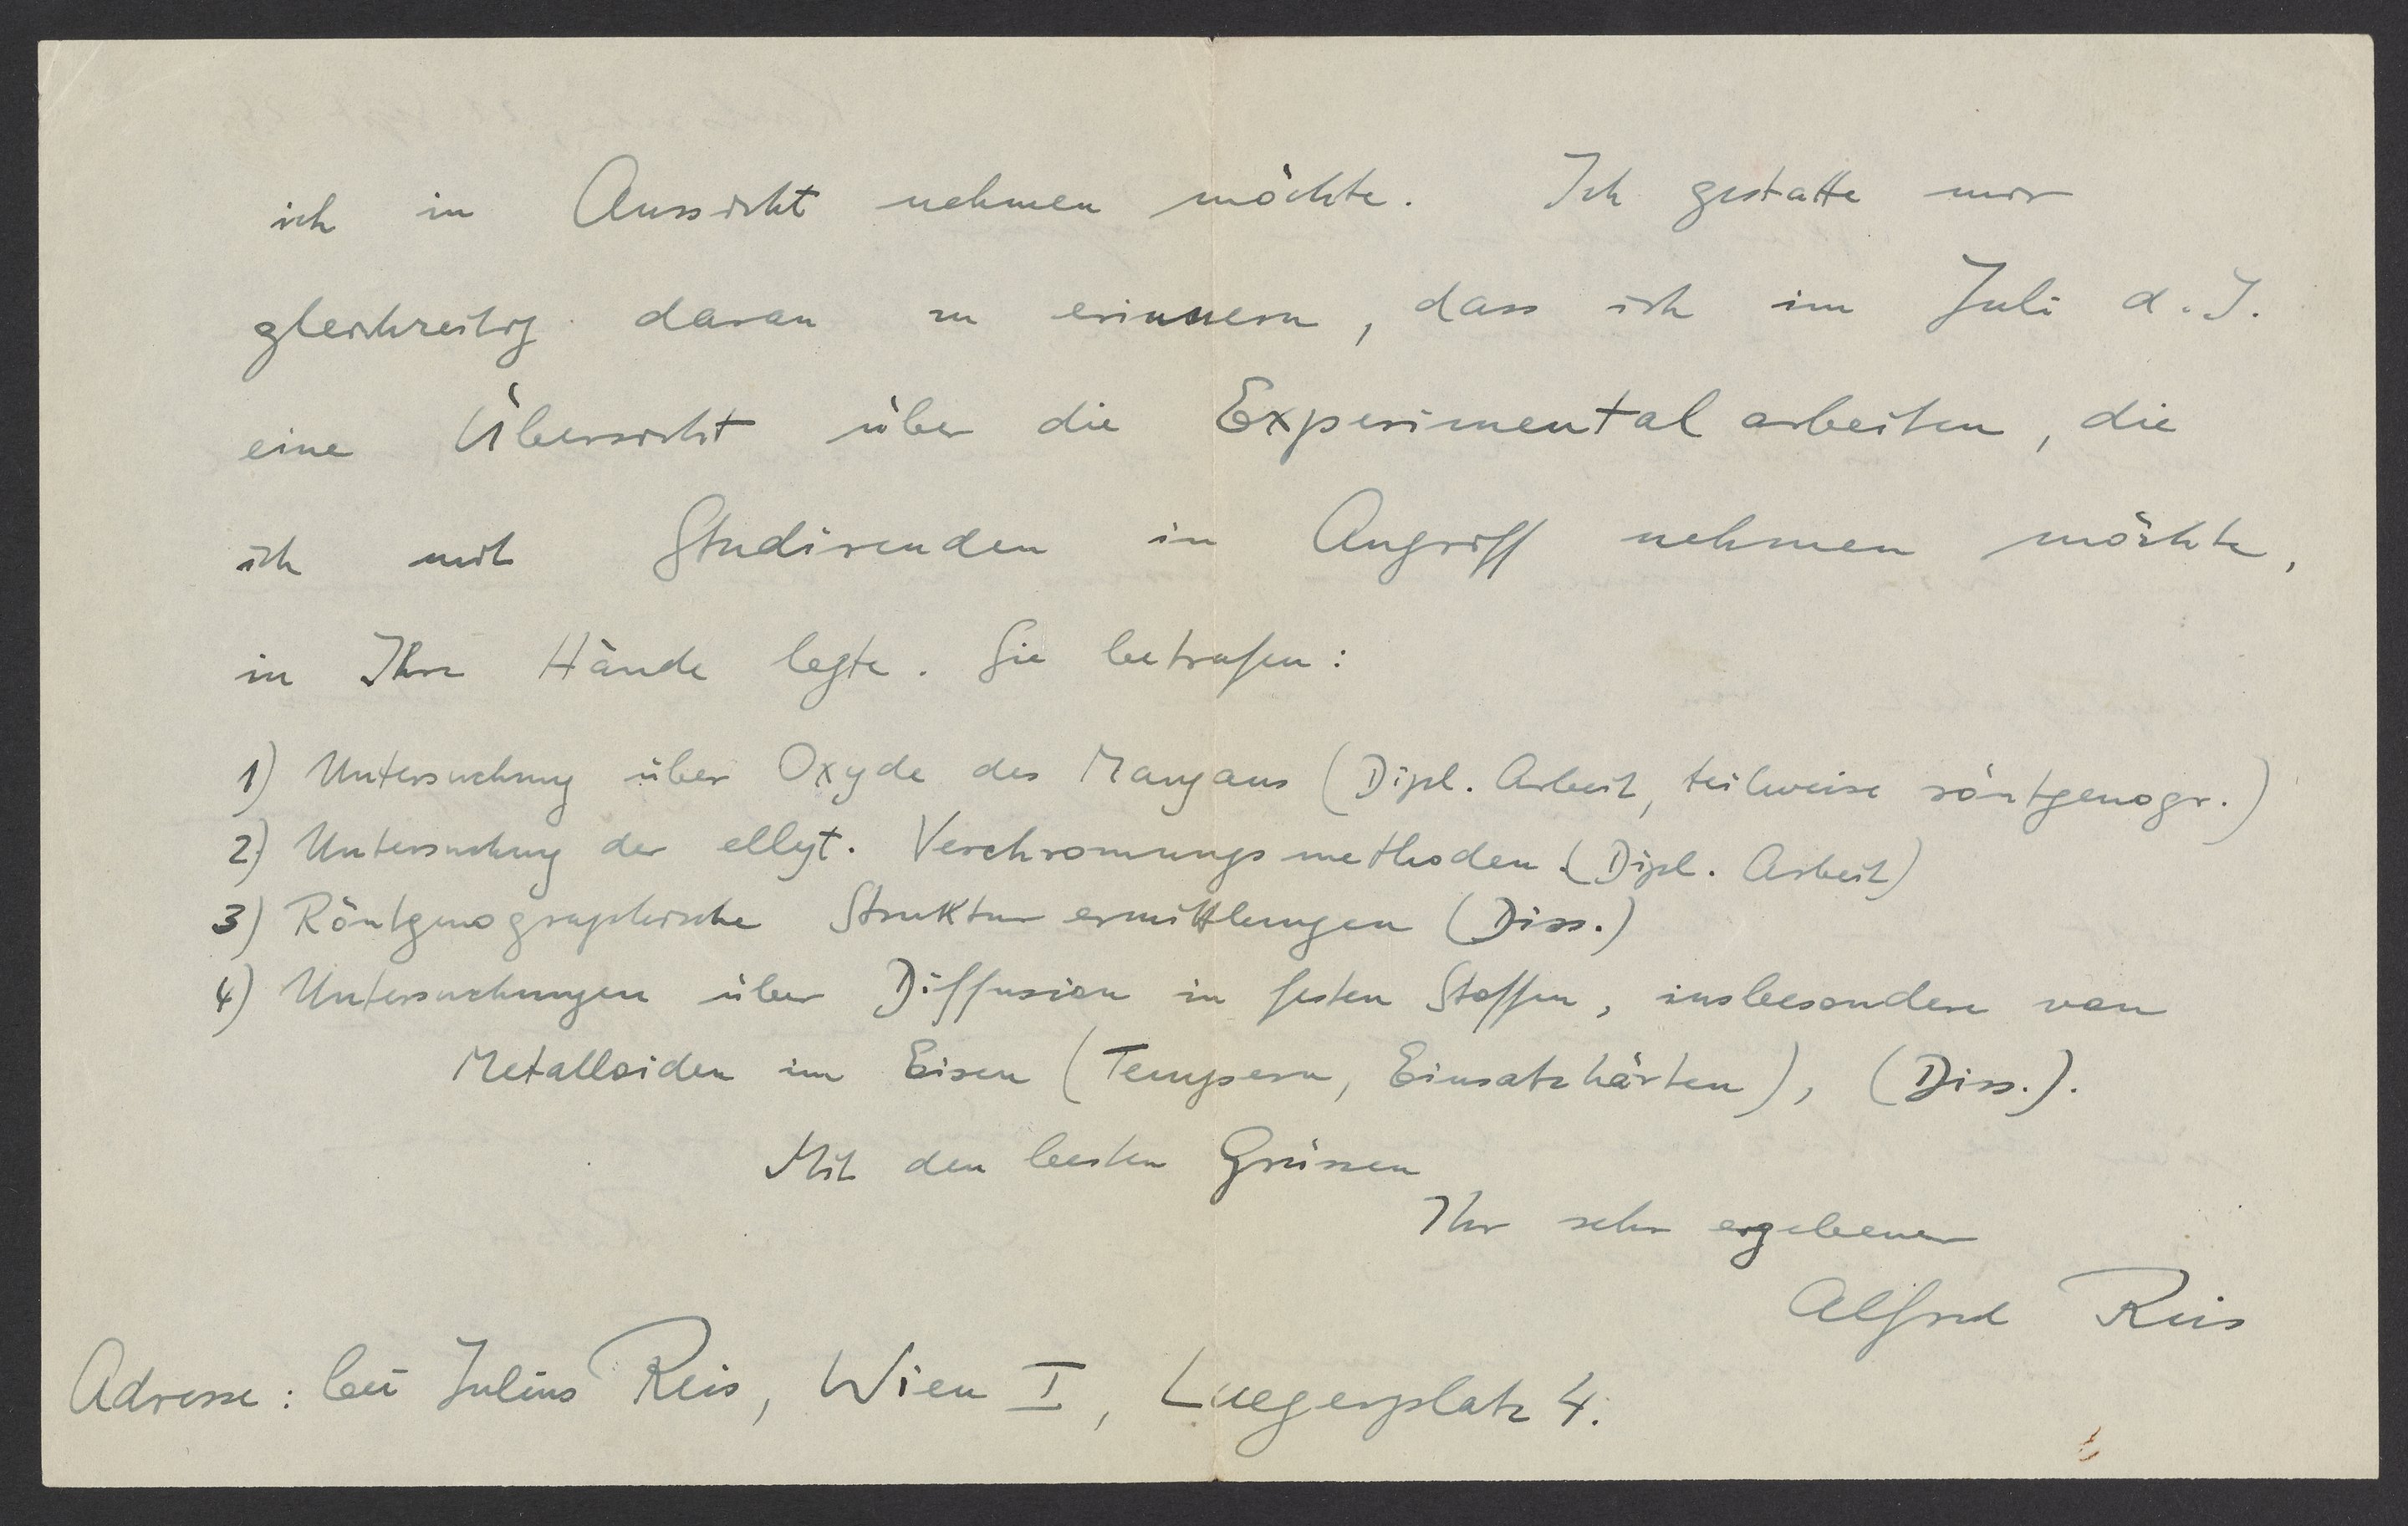 ich in Aussicht nehmen möchte. Ich gestatte mir
gleichzeitig daran zu erinnern, dass ich im Juli d. J.
eine Übersicht über die Experimentalarbeiten, die
ich mit Studirenden in Angriff nehmen möchte,
in Ihre Hände legte. Sie betrafen:
1) Untersuchung über Oxyde des Mangans (Dipl. Arbeit, teilweise röntgenogr.)
2) Untersuchung der ellyt. Verchromungsmethoden (Dipl. Arbeit)
3) Röntgenographische Strukturermittlungen (Diss.)
4) Untersuchungen über Diffusion in festen Stoffen, insbesondere von
Metalloiden im Eisen (Tempern, Einsatzhärten), (Diss.).
Mit den besten Grüssen
Ihr sehr ergebener
Alfred Reis
Adresse: bei Julius Reis, Wien I, Luegerplatz 4.